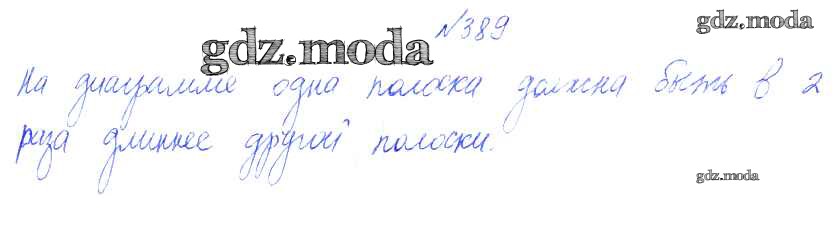 №389
gdz.moda
gdz.moda
На диаграмме одна полоска должна быть в 2
раза длиннее другой полоски.
gdz.moda